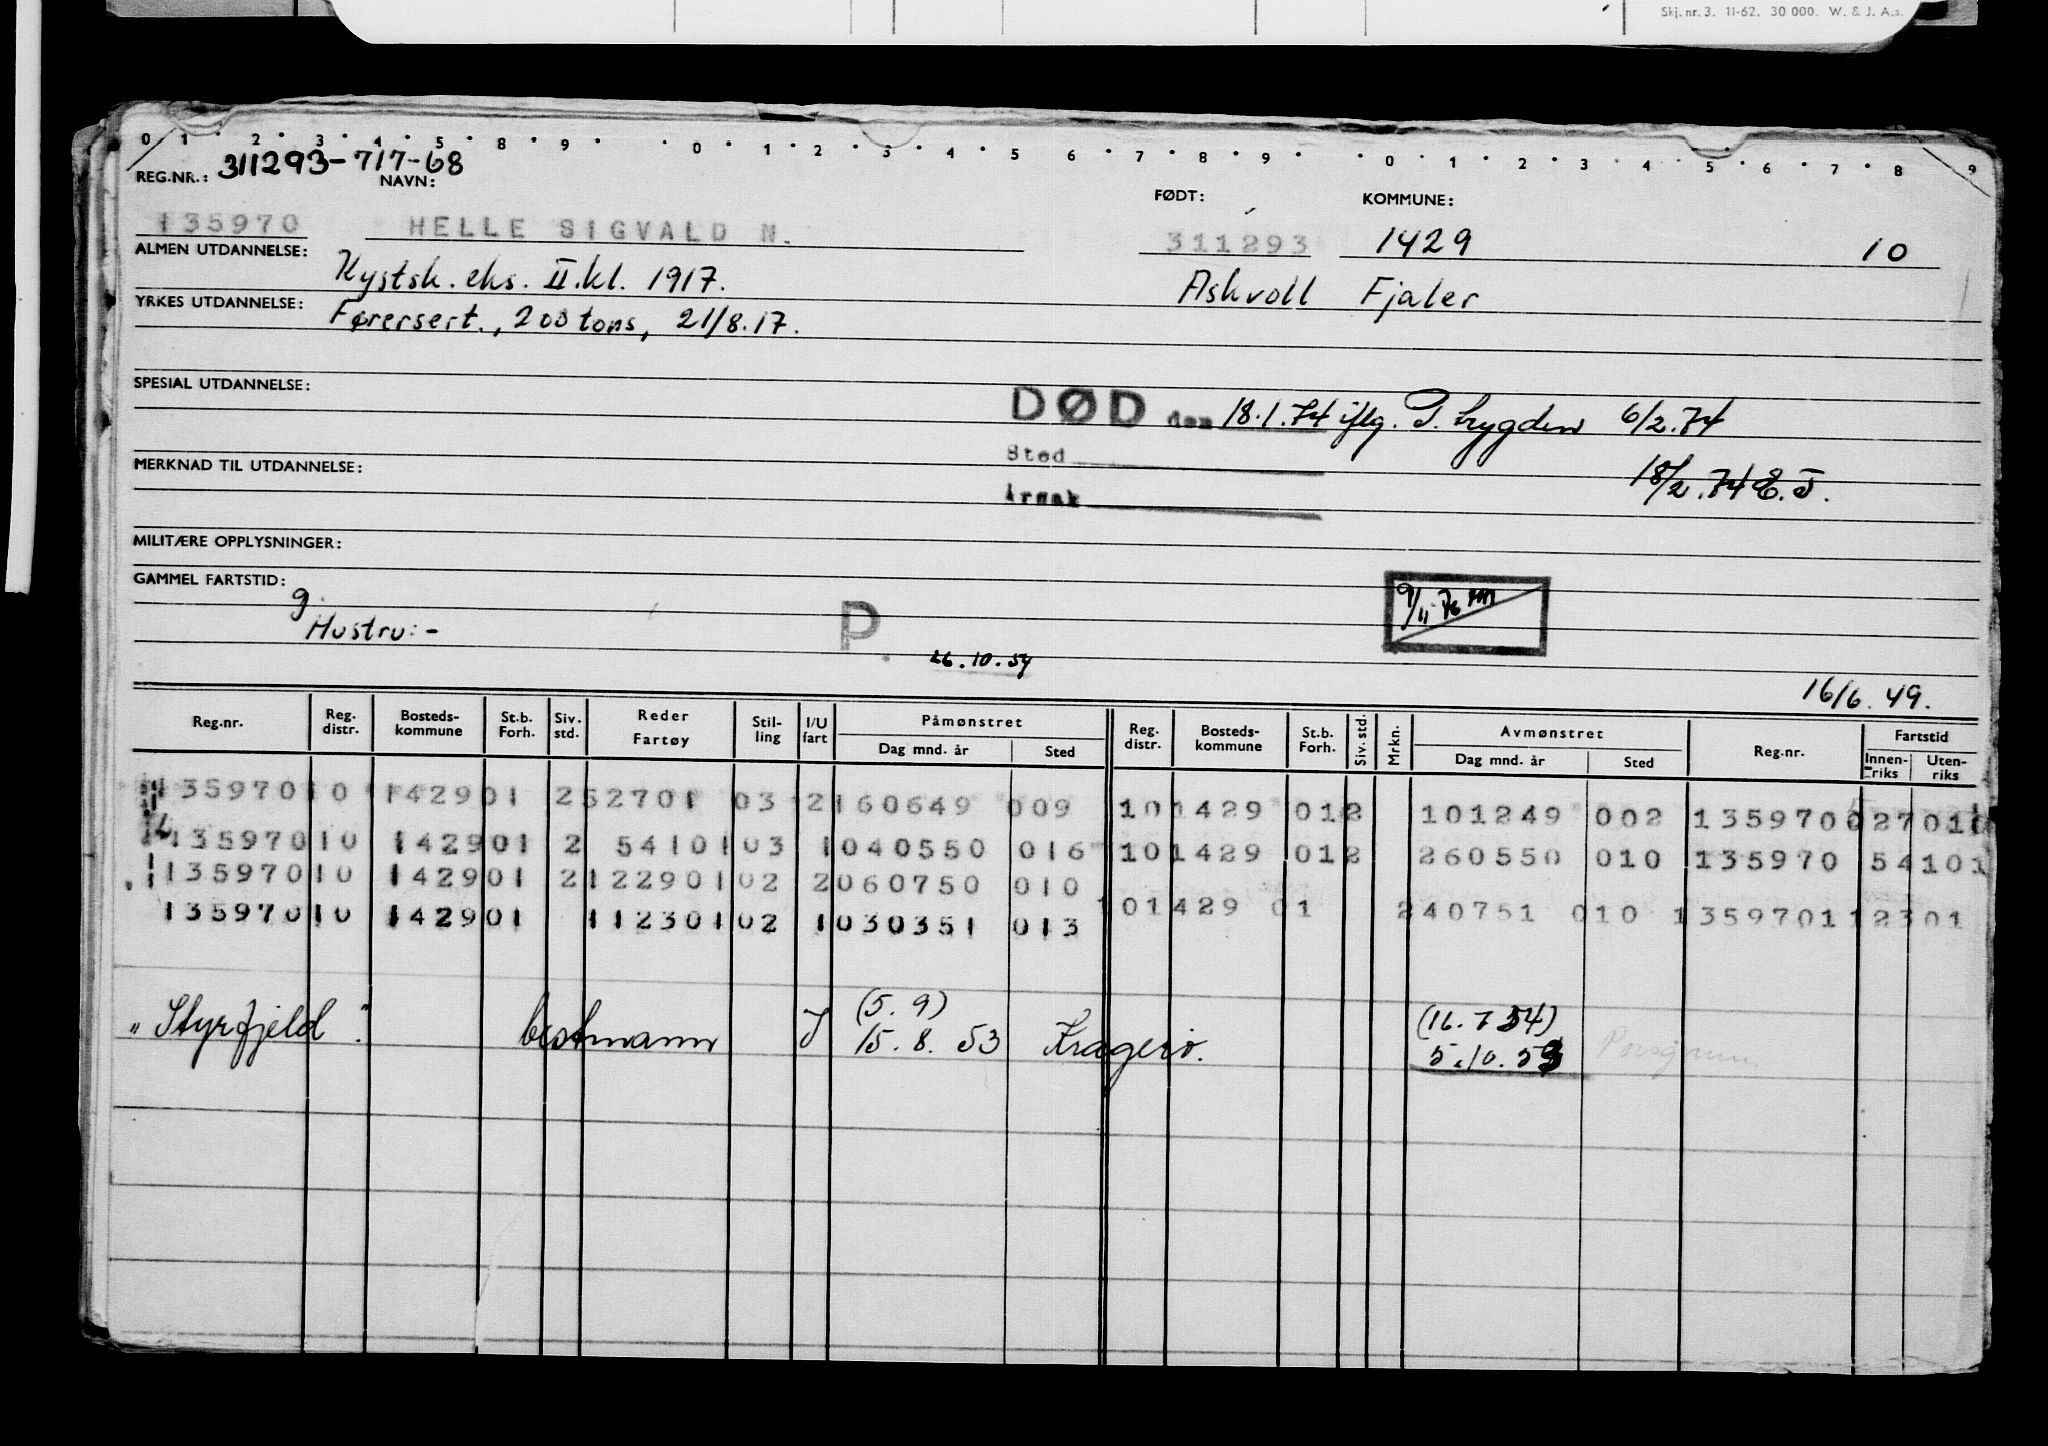 Skj. nr. 3. 11-62. 30 000. W. & J. A.s.
0 1 2 3 4 5 8 9 0 1 2 3 4 5 6 7 8 9 0 1 2 3 4 5 6 7 8 9
REG.NR.: 311293-717-68
NAVN: FØDT: KOMMUNE:
135970 HELLE SIGVALD N. 311293 1429 10
ALMEN UTDANNELSE: Kystsk. eks. II. kl. 1917. Askvoll Fjaler
YRKES UTDANNELSE: Førersert., 200 tons, 21/8.17.
SPESIAL UTDANNELSE:
DØD den 18.1.74 iflg. P. trygden 6/2.74
Sted
MERKNAD TIL UTDANNELSE: 18/2.74 E.J.
Årsak
MILITÆRE OPPLYSNINGER:
GAMMEL FARTSTID:
g. 9/11-76
Hustru:-
P.
26.10.54
16/6.49.
Reg.nr. Reg. distr. Bosteds-kommune St.b. Forh. Siv. std. Reder Fartøy Stil-ling I/U fart Påmønstret Dag mnd. år Sted Reg. distr. Bosteds-kommune St.b. Forh. Siv. std. Mrkn. Avmønstret Dag mnd. år Sted Reg.nr. Fartstid Innen-riks Uten-riks
135970 10 1429 01 2 52701 03 2 160649 009 10 1429 01 2 101249 002 135970 027011
135970 10 1429 01 2 54101 03 1 040550 016 10 1429 01 2 260550 010 135970 54101
135970 10 1429 01 2 122901 02 2 060750 010
135970 10 1429 01 112301 02 1 030351 013 10 1429 01 240751 010 135970 112301
(5. 9) (16. 7 54)
"Styrfjeld". bestmann J 15. 8. 53 Kragerø. 5.10.53 Porsgrunn